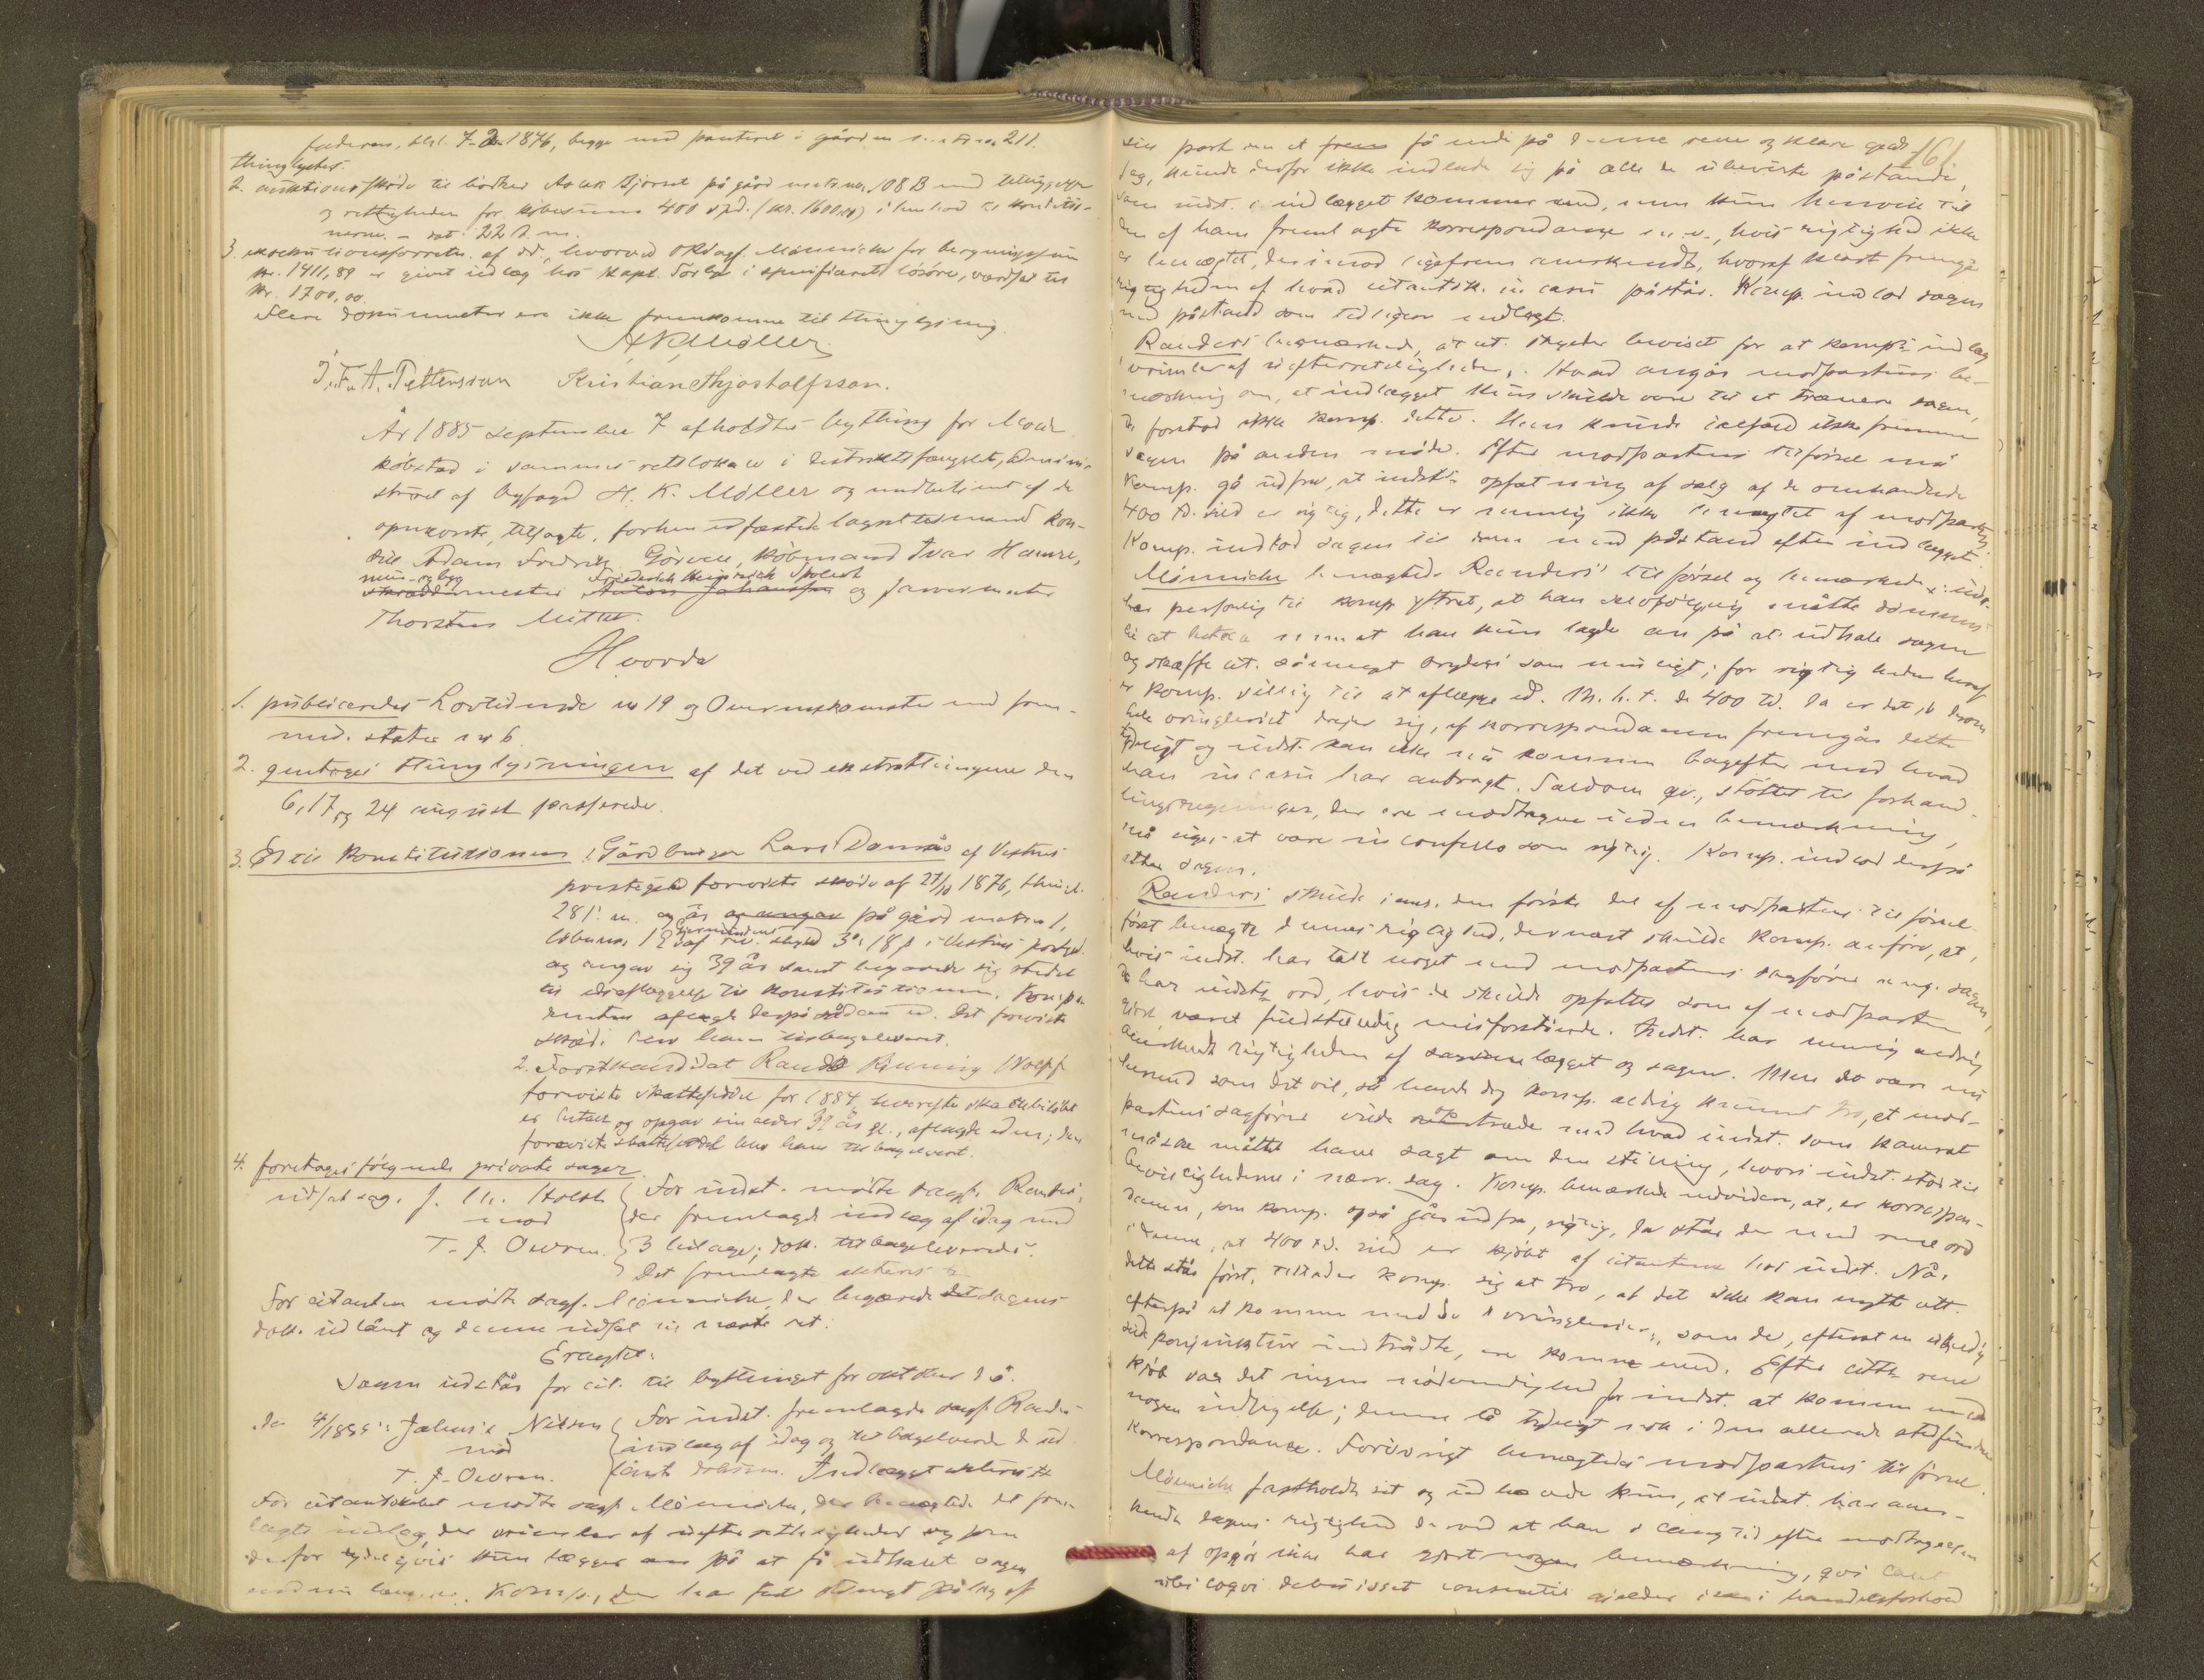 federen, thgl. 7-2-1876, begge med panteret i gården matr. no. 211.
thinglyst.
2. auktionsskøde til Aslak Bjørset på gård matr. no. 108 B med tilliggelse
og rettigheder for kjøbesum 400 spd. (kr. 1600,00) i henhold til konditio-
nerne. - dat. 22 d. m.
3. exekutionsforretn. af dd, hvorved ORsagf. Mönniche for bergningssum
kr. 1411,89 er givet indlæg hos kapt. i specificeret løsøre, værdsat til
kr. 1700,00.
Flere dokumenter ere ikke fremkomne til thinglysning.
H K Møller
J. F. A. Pettersson Kristian Thjostolfsson.
År 1885 september 7 afholdtes bything for Molde
købstad i sammes retslokale i distriktsfængslet, admini-
streret af byfoged H. K. Møller og medbetjent af de
opnævnte, tilsagte, forhen edfæstede lagrettesmænd kon-
sul Adam Fredrik Gørvell, købmand Ivar Hamre,
mur- og byg
skræddermester Anton Johanssen og farvermester
Frederik Heinrich
Thorsten Mittet.
Hvorda
1. publiceredes Lovtidende no 19 og Overenskomster med frem-
med. stater no 6.
2. gentoges thinglysningen af det ved ekstrathingene den
6, 17 og 24 august passerede.
3. Ed til konstitutionen: 1. Gårdbruger Lars Damås af Vestnes
prestegjeld foreviste skøde af 27/10 1876, thingl.
28 s. m. og år og angav på gård matr. no 1,
løbeno. 12 af rev. skyld 3 ort 18 s i Vestnes prestgd.
og angav sig 39 år samt begærede sig stedet
til edsaflæggelse til konstitutionen. Kompa-
renten aflagde derpå sådan ed. Det foreviste
skøde blev ham tilbageleveret.
2. Forstkandidat Rönning Wolff
foreviste skatteseddel for 1884 hvorefter skattebeløbet
er betalt og opgav sin alder 32 år gl., aflagde eden; den
foreviste skatteseddel blev ham tilbageleveret.
4. foretoges følgende private sager
udsat sag. J. Chr. Holst
mod
T. J. Owren.
For indst. mødte sagf. Randers,
der fremlagde indlæg af idag med
3 bilage; dok. tilbageleveredes.
Det fremlagte akteres
For citanten mødte sagf. Mönniche, der begærede sagens
dok. udlånt og denne udsat til næste ret.
Eragtet:
Sagen udstår for cit. til bythinget for oktober d. å.
No 4/1885: Nilsen
mod
T. J. Owren.
For indst. fremlagde sagf. Randers
indlæg af idag og tilbageleverede de ud-
lånte dokum. Indlægget akteres
For citantskabet mødte sagf. Mönniche, der benægtede det frem-
lagte indlæg, der vrimler af uefterretteligheder og som
derfor tydeligvis kun lægger an på at få udhalet sagen
Komp., der har fået strengt pålæg af
161.
sin part om at frem få ende på denne rene og klare gjælds-
sag, kunde derfor ikke indlade sig på alle de ubeviste påstande,
som indst. i indlægget kommer med, men kun henvise til
den af ham fremlagte korrespondance m. v., hvis rigtighed ikke
er benægtet, derimod ligefrem anerkendt, hvoraf klart fremgår
rigtigheden af hvad citantsk. in casu påstår. Komp. indlod sagen
med påstand som tidligere nedlagt.
Randers bemærked, at cit. skylder beviset for at komp.s indlæg
vrimler af uefterretteligheder. Hvad angår modpartens be-
mærkning om, at indlægget kun skulde være til at trænere sagen,
da forstod ikke komp. dette. Han kunde ialfald ikke fremme
sagen på anden måde. Efter modpartens tilførsel må
komp. gå ud fra, at indst.s opfatning af salg af de omhandlede
400 td. sild er rigtig, dette er nemlig ikke benægtet af modparten.
Komp. indlod sagen til dom med påstand efter indlægget.
Mönniche benægtede Randers' tilførsel og bemærkede: indst.
har personlig til komp. ytret, at han selvfølgelig måtte dømmes
til at betale men at han kun lagde an på at udhale sagen
og skaffe cit. såmeget bryderi som muligt; for rigtigheden heraf
er komp. villig til at aflægge ed. M. h. t. de 400 td. da er det jo derom
hele vrøvleriet drejer sig, af korrespondancen fremgår dette
tydeligt og indst. kan ikke nu komme bagefter med hvad
han in casu har anbragt. Saldoen qv., støttet til forhand-
lingsregninger, der ere modtagne uden bemærkning,
må siges at være in confesso som rigtig. Komp. indlod derpå
atter sagen.
Randers skulde i ans. den første del af modpartens tilførsel
først benægte dennes rigtighed, dernæst skulde komp. anføre, at,
hvis indst. har talt noget med modpartens sagfører ang. sagen,
da har indst. ord, hvis de skulde opfattes som af modparten
gjort været fuldstændig misforståede. Indst. har nemlig aldrig
anerkendt rigtigheden af søgsmålet og sagen. Men det være nu
hermed som det vil, så havde dog komp. aldrig kunnet tro, at mod-
partens sagfører vilde optræde med hvad indst. som kamrat
måske måtte have sagt om den stilling, hvori indst. stod til
bevislighederne i nærv. sag. Komp. bemærkede endvidere, at, er korrespon-
dancen, som komp. også går ud fra, rigtig, da står der med rene ord
i denne, at 400 td. sild er kjøbt af citanterne hos indst. Når
dette står først, tillader komp. sig at tro, at det ikke kan nytte cit.
efterpå at komme med de vrøvlerier, som de, efterat en uheldig
sild konjunktur indtrådte, ere komne med. Efter dette rene
kjøb var det ingen nødvendighed for indst. at komme med
nogen indsigelse; denne lå tydeligt nok i den allerede stedfundne
korrespondance. Forøvrigt benægtedes modpartens tilførsel.
Mönniche fastholdt sit og tilføiede kun, at indst. har aner-
kendt sagens rigtighed derved at han i lang tid efter modtagelsen
af opgør ikke har gjort nogen bemærkning, qvi tacet
ubi loqvi debuisset consentit gjælder i handelsforhold